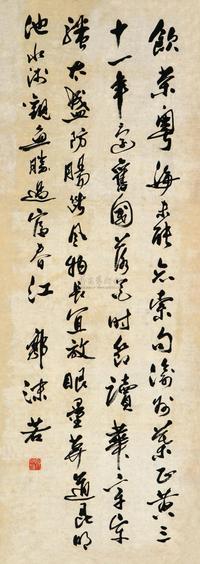 飲茶粵海未能忘索句渝州葉正黃三
十一年還舊國落花时節讀華章牢
騷太盛防腸斷風物长宜放眼量莫道昆明
池水淺觀魚勝過富春江 郭沫若